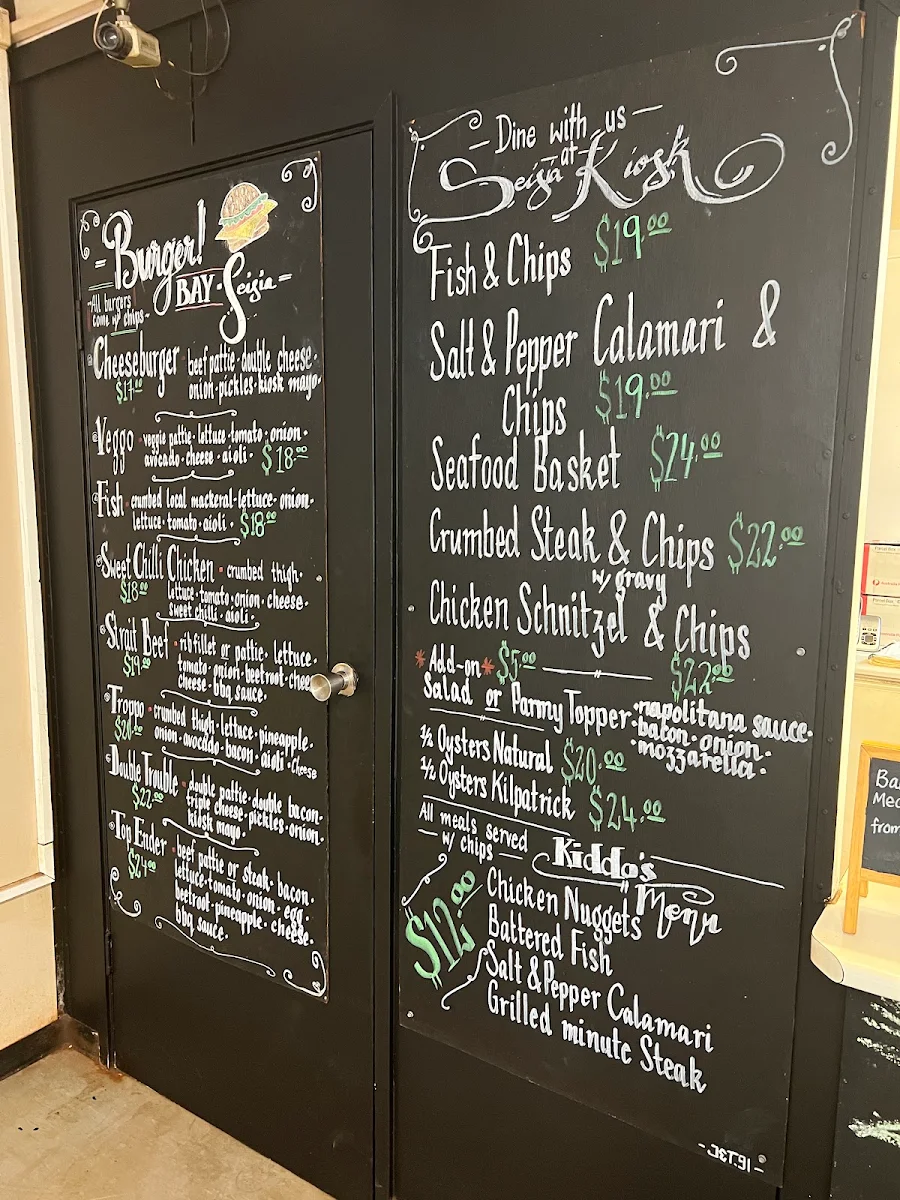 Burger!
BAY · Seisia
- All burgers
come w/ chips -
Cheeseburger beef pattie · double cheese ·
$17.00 onion · pickles · kiosk mayo ·
Veggo · veggie pattie · lettuce · tomato · onion ·
avocado · cheese · aioli · $18.00
Fish · crumbed local mackeral · lettuce · onion ·
lettuce · tomato · aioli · $18.00
Sweet Chilli Chicken · crumbed thigh ·
$18.00 lettuce · tomato · onion · cheese ·
sweet chilli · aioli ·
Strait Beef · rib fillet or pattie · lettuce ·
$19.00 tomato · onion · beetroot · chees
cheese · bbq sauce ·
Troppo · crumbed thigh · lettuce · pineapple ·
$20.00 onion · avocado · bacon · aioli · cheese
Double Trouble · double pattie · double bacon ·
$22.00 triple cheese · pickles · onion ·
kiosk mayo ·
Top Ender · beef pattie or steak · bacon ·
$24.00 lettuce · tomato · onion · egg ·
beetroot · pineapple · cheese ·
bbq sauce ·
- Dine with us -
- at -
Seisia Kiosk
Fish & Chips $19.00
Salt & Pepper Calamari &
Chips $19.00
Seafood Basket $24.00
Crumbed Steak & Chips $22.00
w/ gravy
Chicken Schnitzel & Chips
$22.00
* Add-on * $5.00
Salad or Parmy Topper · napolitana sauce ·
· bacon · onion ·
· mozzarella ·
1/2 Oysters Natural $20.00
1/2 Oysters Kilpatrick $24.00
All meals served
- w/ chips -
Kiddo's
Menu
$12.00
Chicken Nuggets
Battered Fish
Salt & Pepper Calamari
Grilled minute Steak
- JET.91 -
Ba
Med
from